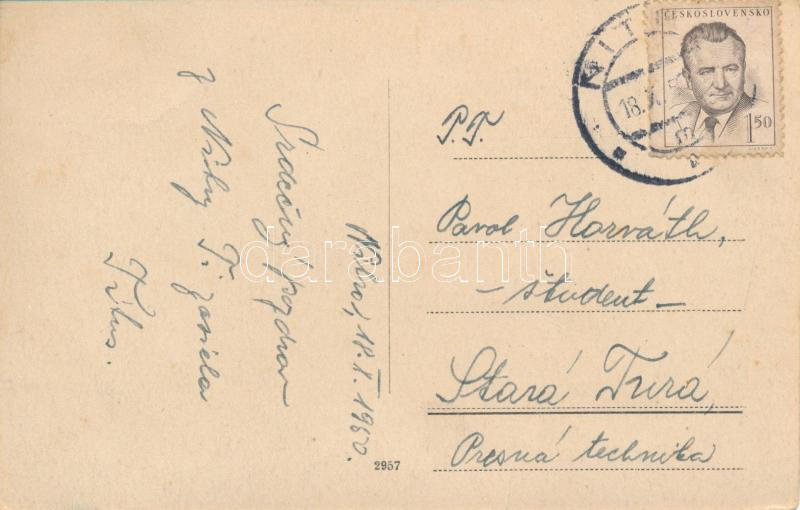 Nitra, 18.X.1950.
Srdečný pozdrav
z Nitry Ti zasiela
Titus.
2957
ČESKOSLOVENSKO
1 50
NIT
18.X.
P.T.
Pavol Horváth,
- študent -
Stará Turá,
Presná technika
darabanth